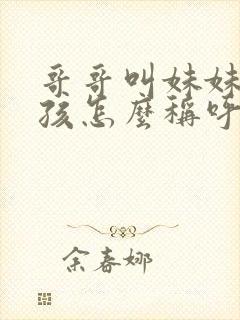 哥哥叫妹妹
孩怎麼稱呼
余春娜